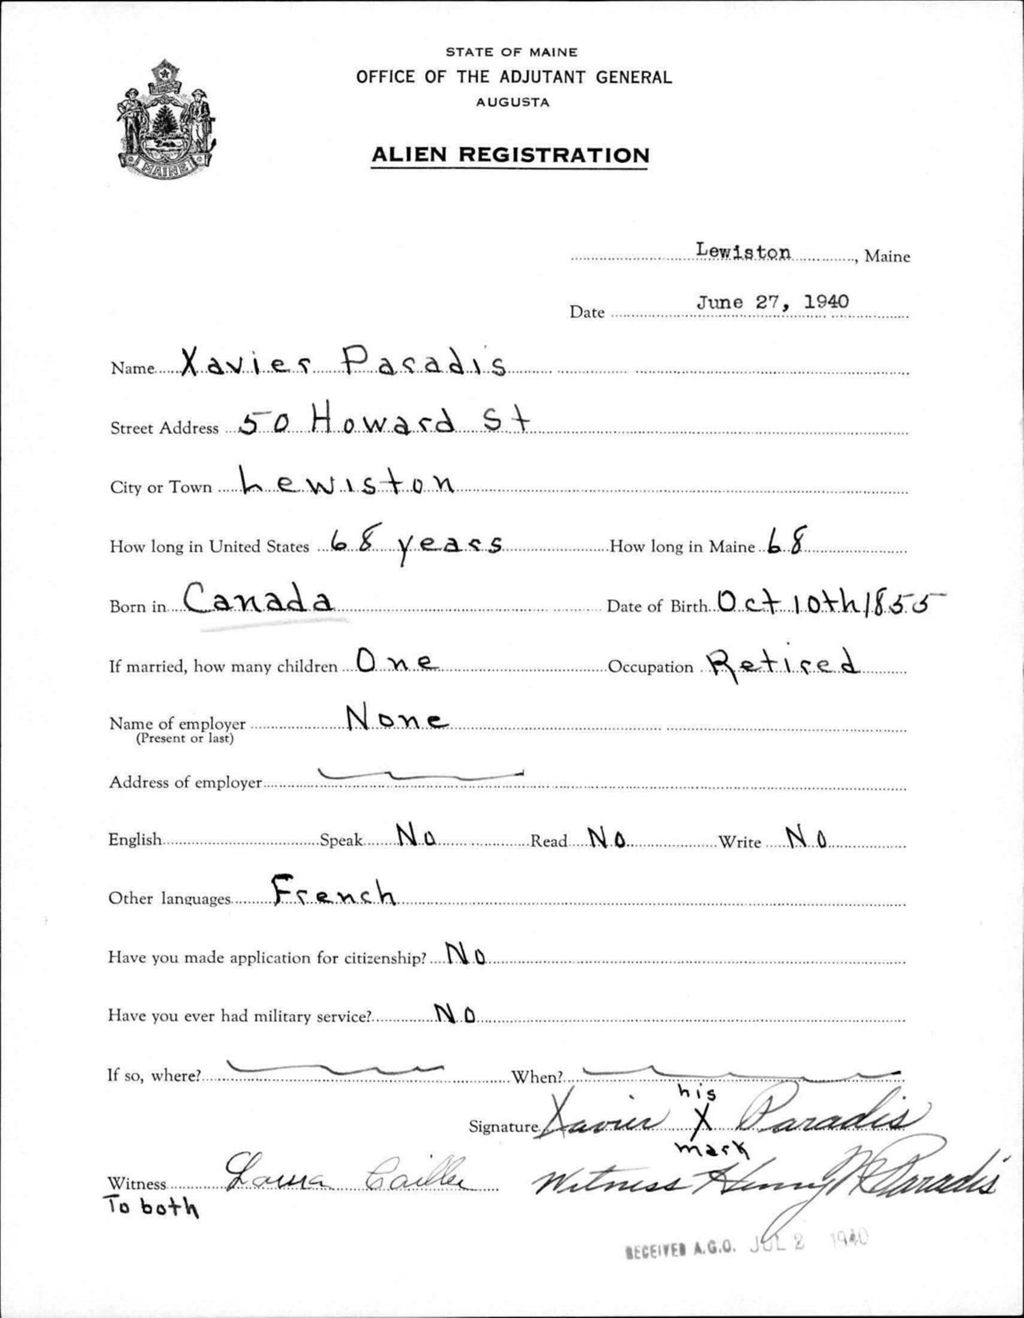 STATE OF MAINE
OFFICE OF THE ADJUTANT GENERAL
AUGUSTA
ALIEN REGISTRATION
MAINE
Lewiston, Maine
Date June 27, 1940
Name Xavier Paradis
Street Address 50 Howard St
City or Town Lewiston
How long in United States 68 years How long in Maine 68
Born in Canada Date of Birth Oct 10th 1855
If married, how many children One Occupation Retired
Name of employer None
(Present or last)
Address of employer
English Speak No Read No Write No
Other languages French
Have you made application for citizenship? No
Have you ever had military service? No
If so, where? When?
his
Signature Xavier X Paradis
mark
Witness Laura Witness Henry Paradis
To both
RECEIVED A.G.O. JUL 2 1940